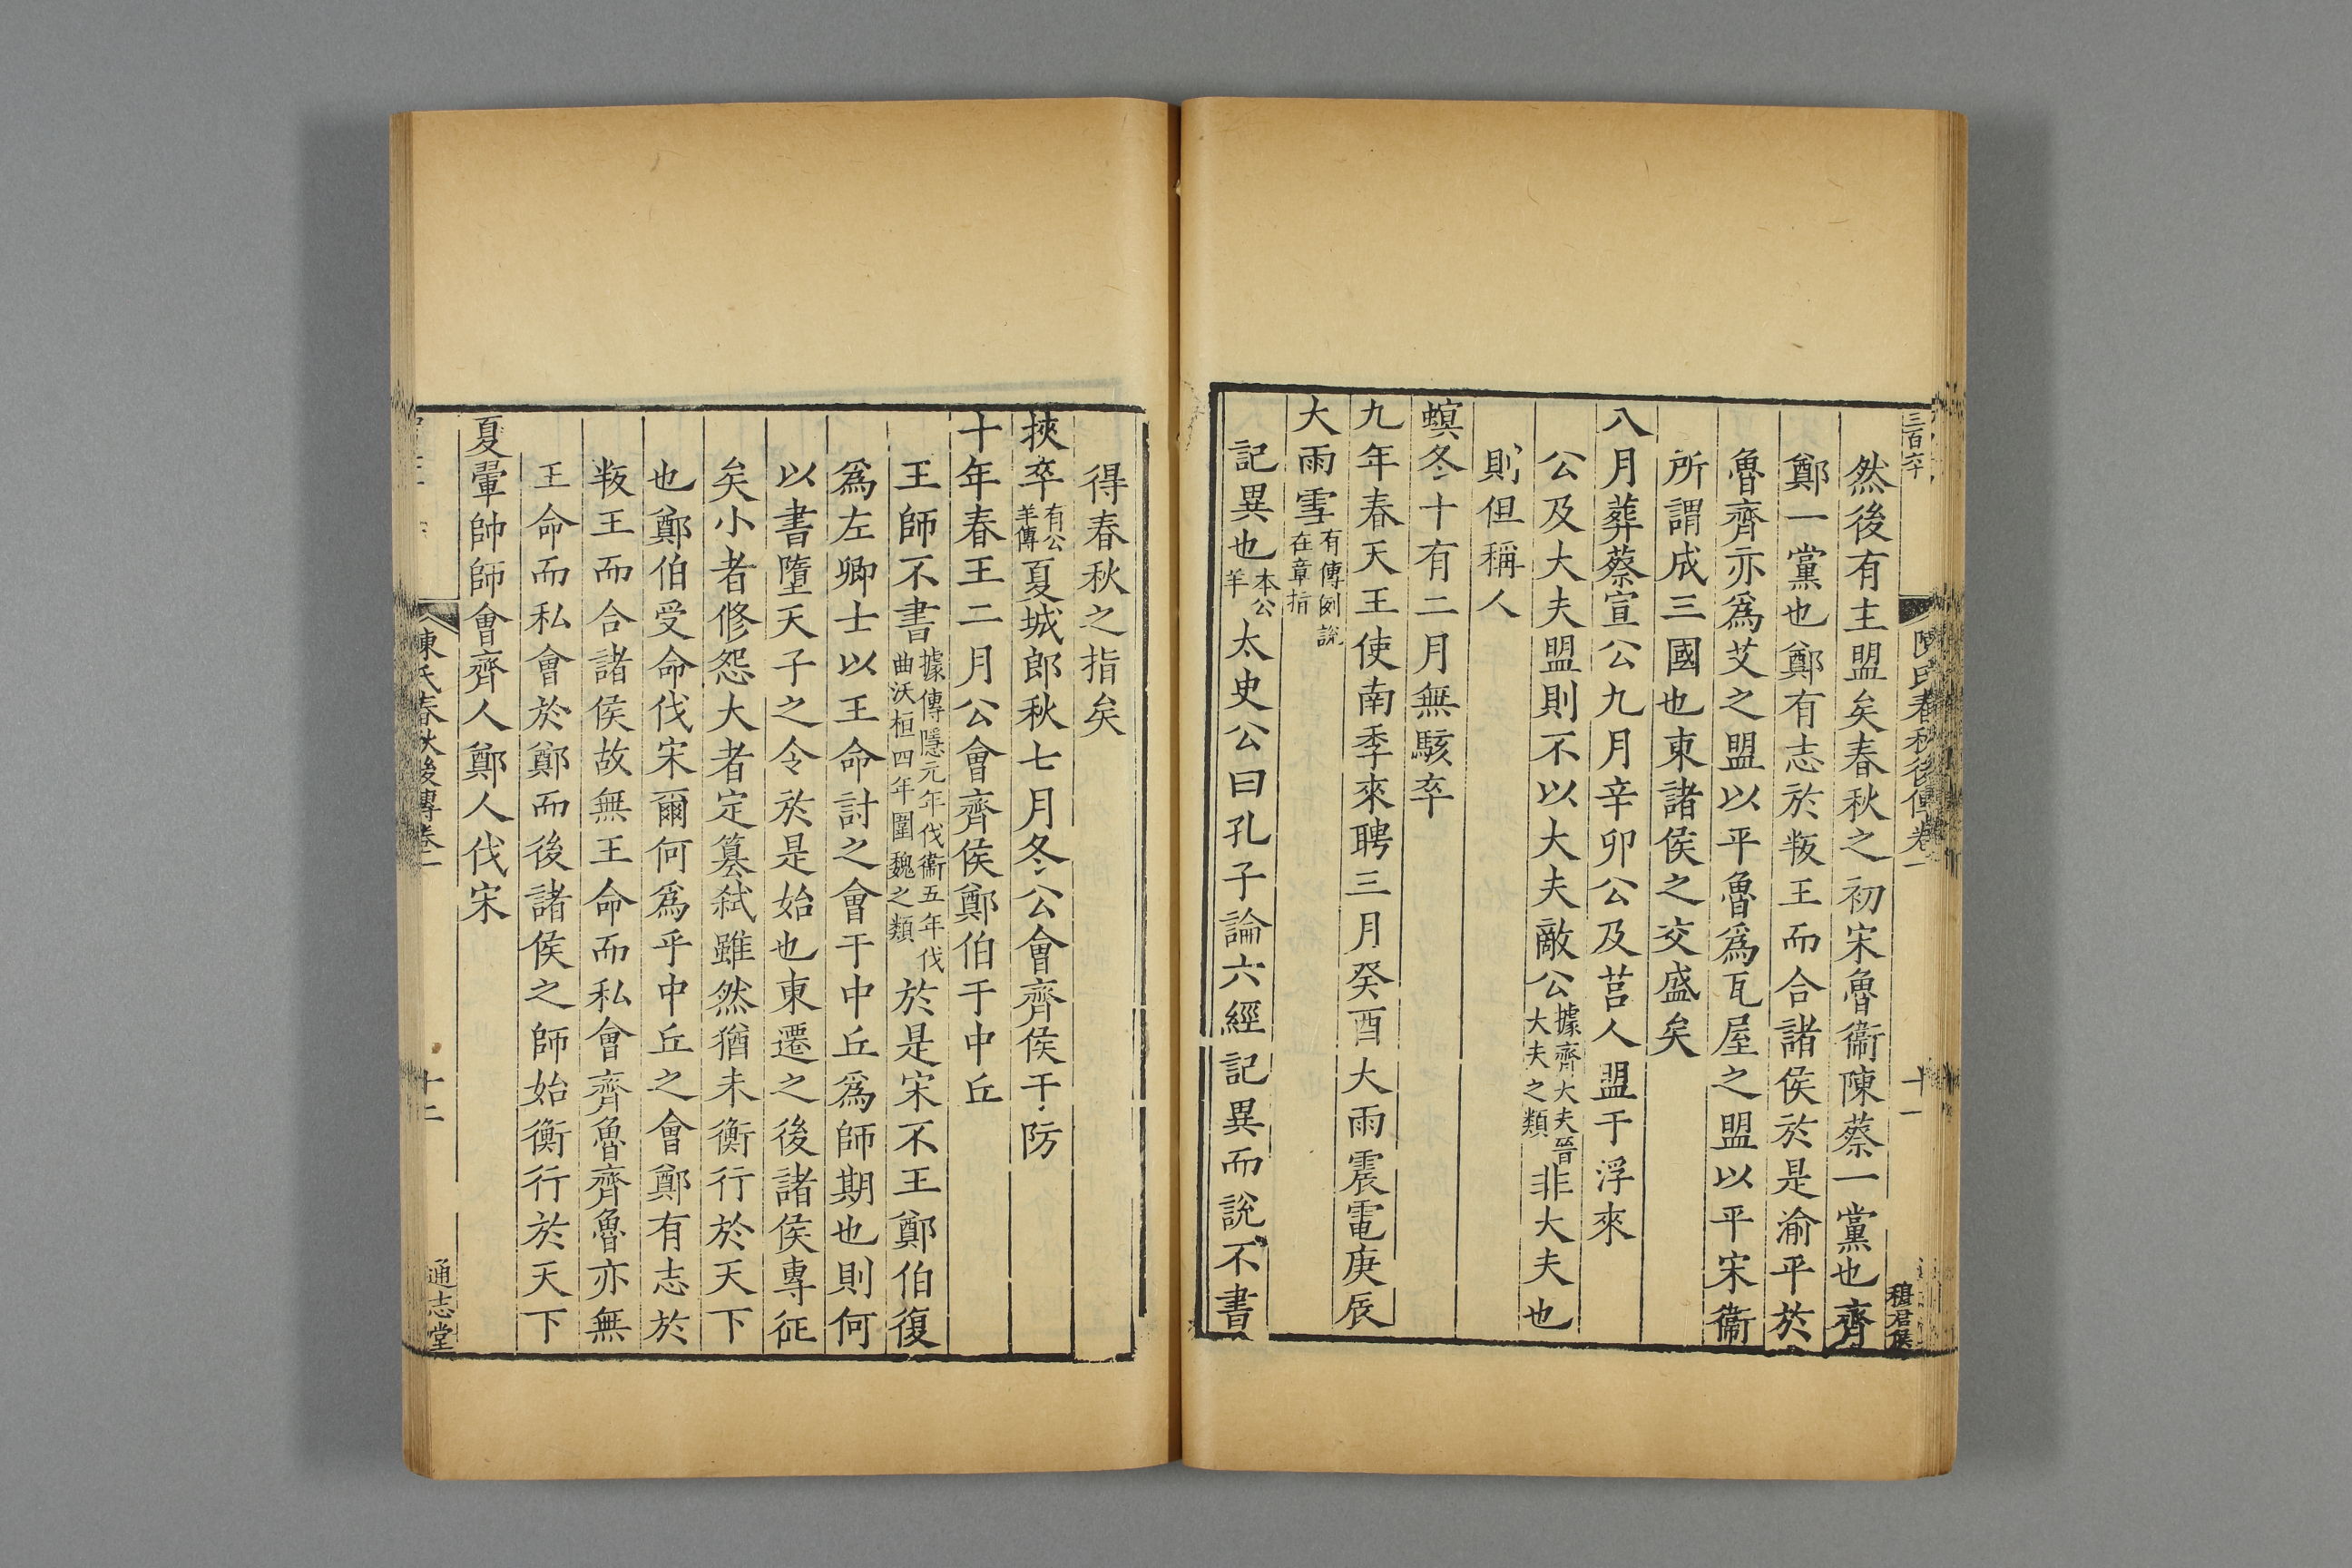 三百卒
陳氏春秋後傳卷一
十一
穆君侯
然後有主盟矣春秋之初宋魯衞陳蔡一黨也齊
鄭一黨也鄭有志於叛王而合諸侯於是渝平於
魯齊亦爲艾之盟以平魯爲瓦屋之盟以平宋衞
所謂成三國也東諸侯之交盛矣
八月葬蔡宣公九月辛卯公及莒人盟于浮來
公及大夫盟則不以大夫敵公據齊大夫晉大夫之類非大夫也
則但稱人
螟冬十有二月無駭卒
九年春天王使南季來聘三月癸酉大雨震電庚辰
大雨雪有傳例說在章指
記異也本公羊太史公曰孔子論六經記異而說不書
得春秋之指矣
挾卒有公羊傳夏城郎秋七月冬公會齊侯于防
十年春王二月公會齊侯鄭伯于中丘
王師不書據傳隱元年伐衞五年伐曲沃桓四年圍魏之類於是宋不王鄭伯復
爲左卿士以王命討之會于中丘爲師期也則何
以書墮天子之令於是始也東遷之後諸侯專征
矣小者修怨大者定篡弒雖然猶未衡行於天下
也鄭伯受命伐宋爾何爲乎中丘之會鄭有志於
叛王而合諸侯故無王命而私會齊魯齊魯亦無
王命而私會於鄭而後諸侯之師始衡行於天下
夏翬帥師會齊人鄭人伐宋
陳氏春秋後傳卷一
十二
通志堂